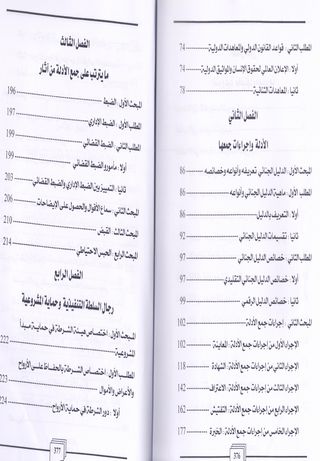 المطلب الثاني : قواعد القانون الدولي والمعاهدات الدولية 74
أولا : الإعلان العالمي لحقوق الإنسان والمواثيق الدولية 74
ثانيا : المعاهدات الثنائية 78
الفصل الثاني
الأدلة وإجراءات جمعها
المبحث الأول : الدليل الجنائي تعريفه وأنواعه وخصائصه 86
المطلب الأول : ماهية الدليل الجنائي وأنواعه 86
أولا : التعريف بالدليل 86
ثانيا : تقسيمات الدليل الجنائي 92
المطلب الثاني : خصائص الدليل الجنائي 97
أولا : خصائص الدليل الجنائي التقليدي 97
ثانيا : خصائص الدليل الرقمي 99
المبحث الثاني : إجراءات جمع الأدلة 102
الإجراء الأول من إجراءات جمع الأدلة : المعاينة 102
الإجراء الثاني من إجراءات جمع الأدلة : الشهادة 118
الإجراء الثالث من إجراءات جمع الأدلة : الاعتراف 142
الإجراء الرابع من إجراءات جمع الأدلة : التفتيش 162
الإجراء الخامس من إجراءات جمع الأدلة : الخبرة 177
376
الفصل الثالث
ما يترتب على جمع الأدلة من آثار
المبحث الأول : الضبط 196
المطلب الأول : الضبط الإداري 197
المطلب الثاني : الضبط القضائي 199
أولا : مأمورو الضبط القضائي 199
ثانيا : التمييز بين الضبط الإداري والضبط القضائي 203
المبحث الثاني : سماع الأقوال والحصول على الايضاحات 206
المبحث الثالث : القبض 210
المبحث الرابع : الحبس الاحتياطي 214
الفصل الرابع
رجال السلطة التنفيذية وحماية المشروعية
المبحث الأول : اختصاص هيئة الشرطة في حماية مبدأ
المشروعية 222
المطلب الأول : اختصاص الشرطة بالحفاظ على الأرواح
والأعراض والأموال 223
أولا : دور الشرطة في حماية الأرواح 224
377